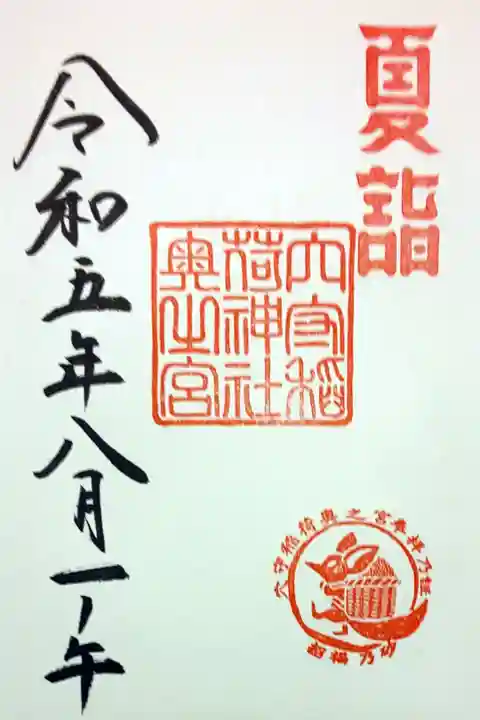 夏詣
穴守稲
荷神社
奥之宮
穴守稲荷奥之宮奉拝乃証
招福乃砂
令和五年八月一ノ午